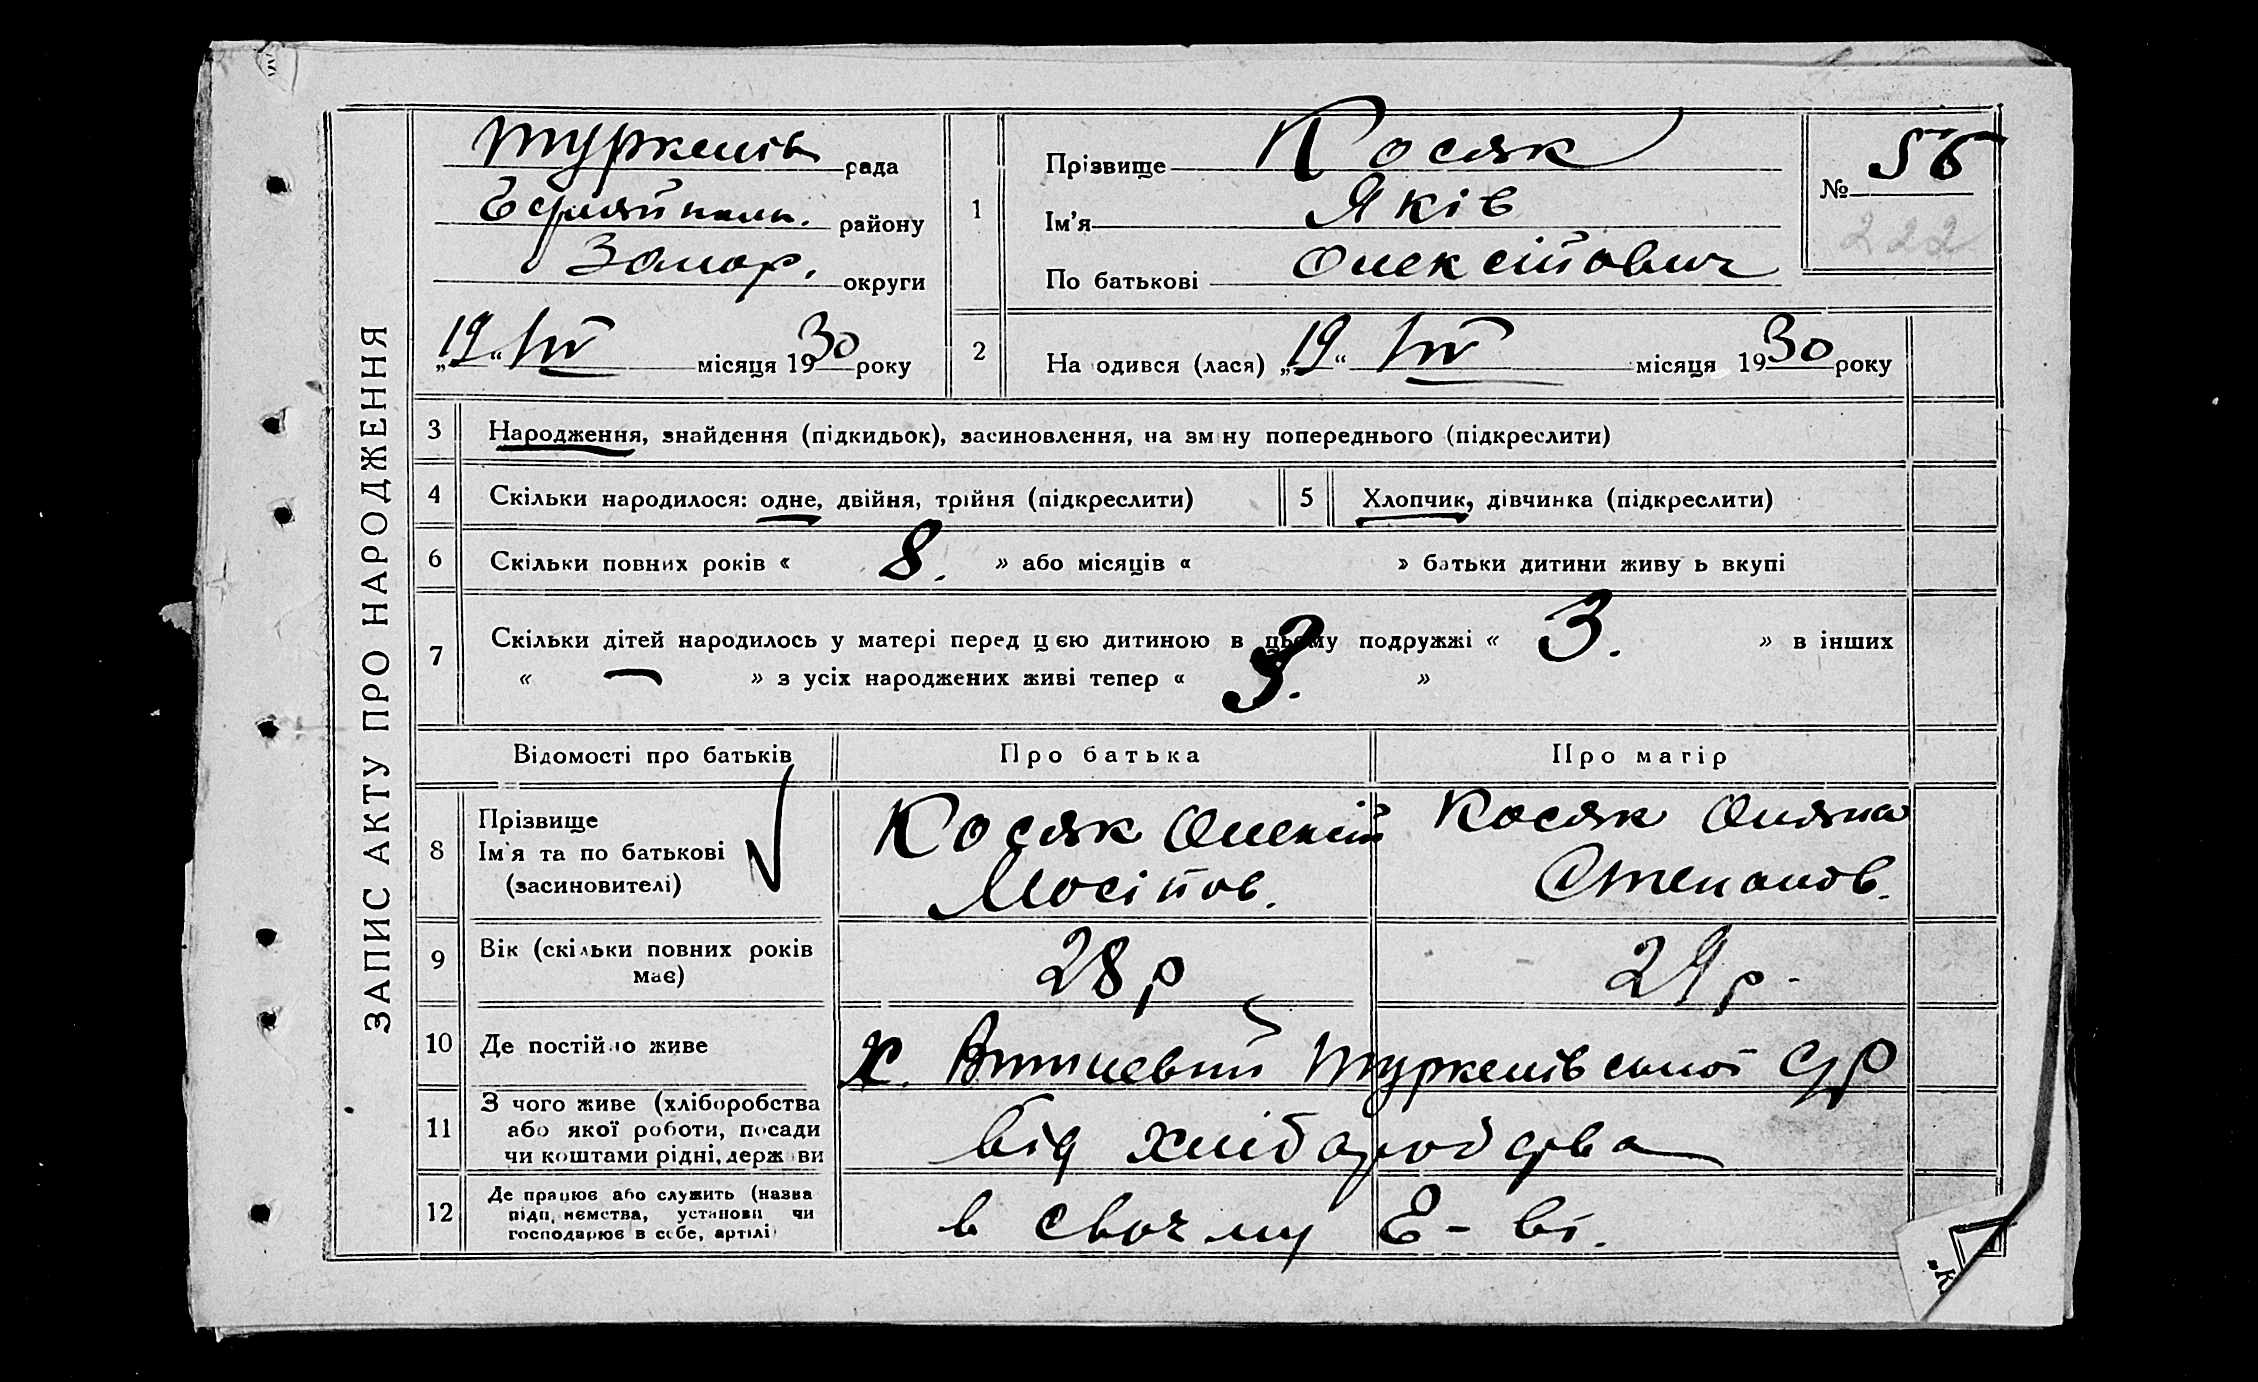 ЗАПИС АКТУ ПРО НАРОДЖЕННЯ
Туркенів рада
району
Запор. округи
„19“ IV місяця 1930 року
1 Прізвище Косяк
Ім'я Яків
По батькові Олексійович
№ 56
222
2 На одився (лася) „19“ IV місяця 1930 року
3 Народження, знайдення (підкидьок), засиновлення, на зм ну попереднього (підкреслити)
4 Скільки народилося: одне, двійня, трійня (підкреслити)
5 Хлопчик, дівчинка (підкреслити)
6 Скільки повних років « 8. » або місяців « » батьки дитини живу ь вкупі
7 Скільки дітей народилось у матері перед цією дитиною в цьому подружжі « 3. » в інших
« — » з усіх народжених живі тепер « 3. »
Відомості про батьків Про батька Про матір
8 Прізвище
Ім'я та по батькові
(засиновителі)
Косяк Олексій
Иосіпов.
Косяк Оляна
Степанов.
9 Вік (скільки повних років
має)
28 р
29 р -
10 Де постійно живе
х. Вишневий Туркенівської с/р
11 З чого живе (хліборобства
або якої роботи, посади
чи коштами рідні, держ ви
від хліборобства
12 Де працює або служить (назва
підп, ємства, установи чи
господарює в себе, артілі)
в своєму